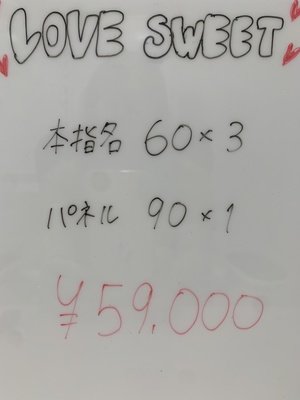 LOVE SWEET
本指名 60×3
パネル 90×1
¥59.000